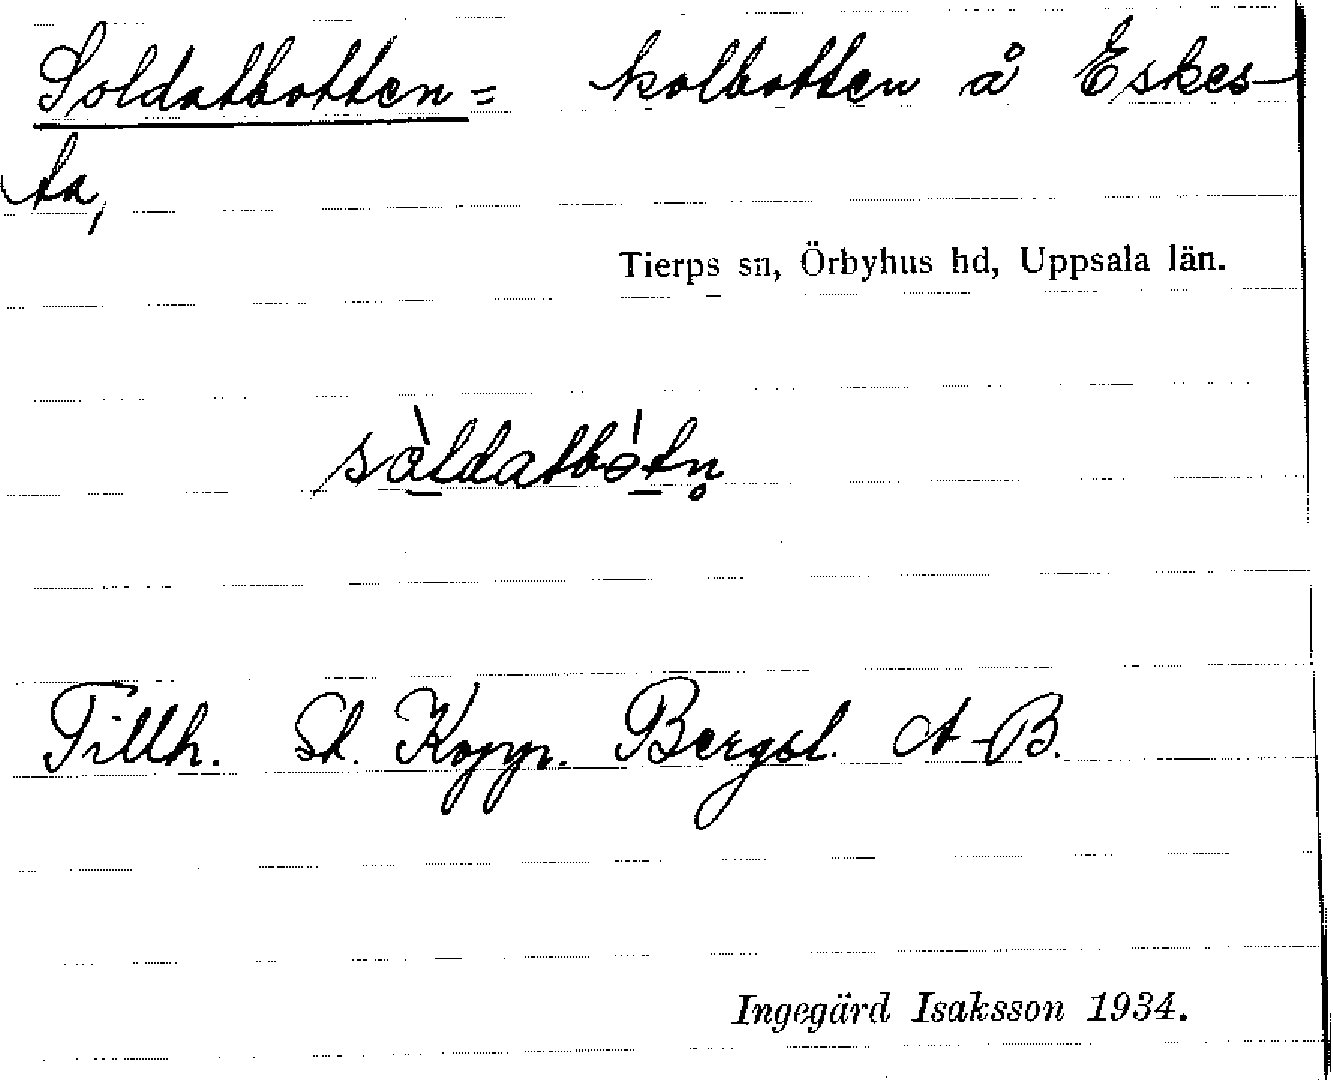 Soldatbotten = kolbotten å Eskes-
ta,
Tierps sn, Örbyhus hd, Uppsala län.
sòldatbótn̥
Tillh. St. Kopp. Bergsl. A-B.
Ingegärd Isaksson 1934.